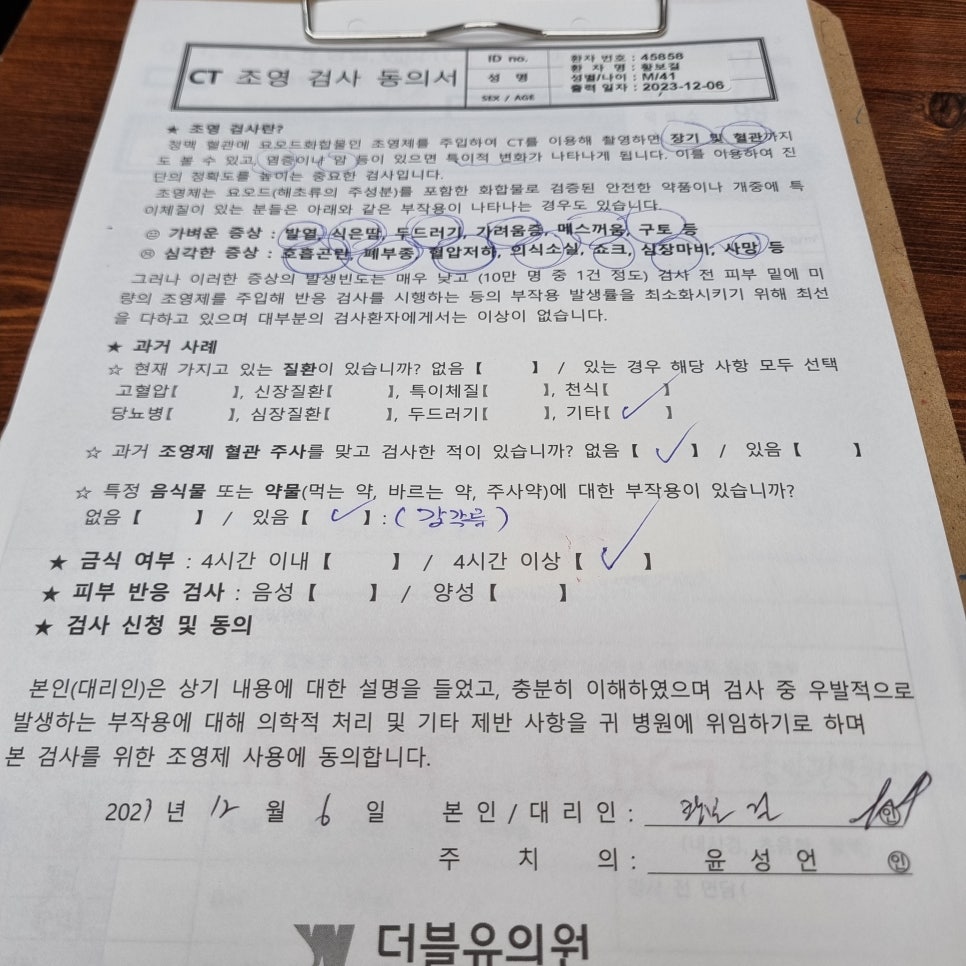 CT 조영 검사 동의서
ID no. 환자 번호 : 45858
성 명 환 자 명 : 황보걸
성별/나이 : M/41
SEX / AGE 출력 일자 : 2023-12-06
★ 조영 검사란?
정맥 혈관에 요오드화합물인 조영제를 주입하여 CT를 이용해 촬영하면 장기 및 혈관까지
도 볼 수 있고, 염증이나 암 등이 있으면 특이적 변화가 나타나게 됩니다. 이를 이용하여 진
단의 정확도를 높이는 중요한 검사입니다.
조영제는 요오드(해초류의 주성분)를 포함한 화합물로 검증된 안전한 약품이나 개중에 특
이체질이 있는 분들은 아래와 같은 부작용이 나타나는 경우도 있습니다.
☺ 가벼운 증상 : 발열, 식은땀, 두드러기, 가려움증, 메스꺼움, 구토 등
☹ 심각한 증상 : 호흡곤란, 폐부종, 혈압저하, 의식소실, 쇼크, 심장마비, 사망 등
그러나 이러한 증상의 발생빈도는 매우 낮고 (10만 명 중 1건 정도) 검사 전 피부 밑에 미
량의 조영제를 주입해 반응 검사를 시행하는 등의 부작용 발생률을 최소화시키기 위해 최선
을 다하고 있으며 대부분의 검사환자에게서는 이상이 없습니다.
★ 과거 사례
☆ 현재 가지고 있는 질환이 있습니까? 없음 【 】 / 있는 경우 해당 사항 모두 선택
고혈압【 】, 신장질환【 】, 특이체질【 】, 천식【 】
당뇨병【 】, 심장질환【 】, 두드러기【 】, 기타【 ✓ 】
☆ 과거 조영제 혈관 주사를 맞고 검사한 적이 있습니까? 없음 【 ✓ 】 / 있음 【 】
☆ 특정 음식물 또는 약물(먹는 약, 바르는 약, 주사약)에 대한 부작용이 있습니까?
없음 【 】 / 있음 【 ✓ 】 : ( 갑각류 )
★ 금식 여부 : 4시간 이내 【 】 / 4시간 이상 【 ✓ 】
★ 피부 반응 검사 : 음성 【 】 / 양성 【 】
★ 검사 신청 및 동의
본인(대리인)은 상기 내용에 대한 설명을 들었고, 충분히 이해하였으며 검사 중 우발적으로
발생하는 부작용에 대해 의학적 처리 및 기타 제반 사항을 귀 병원에 위임하기로 하며
본 검사를 위한 조영제 사용에 동의합니다.
202 년 12 월 6 일 본 인 / 대 리 인 : 황보 걸 ㊞
주 치 의 : 윤 성 언 ㊞
더블유의원